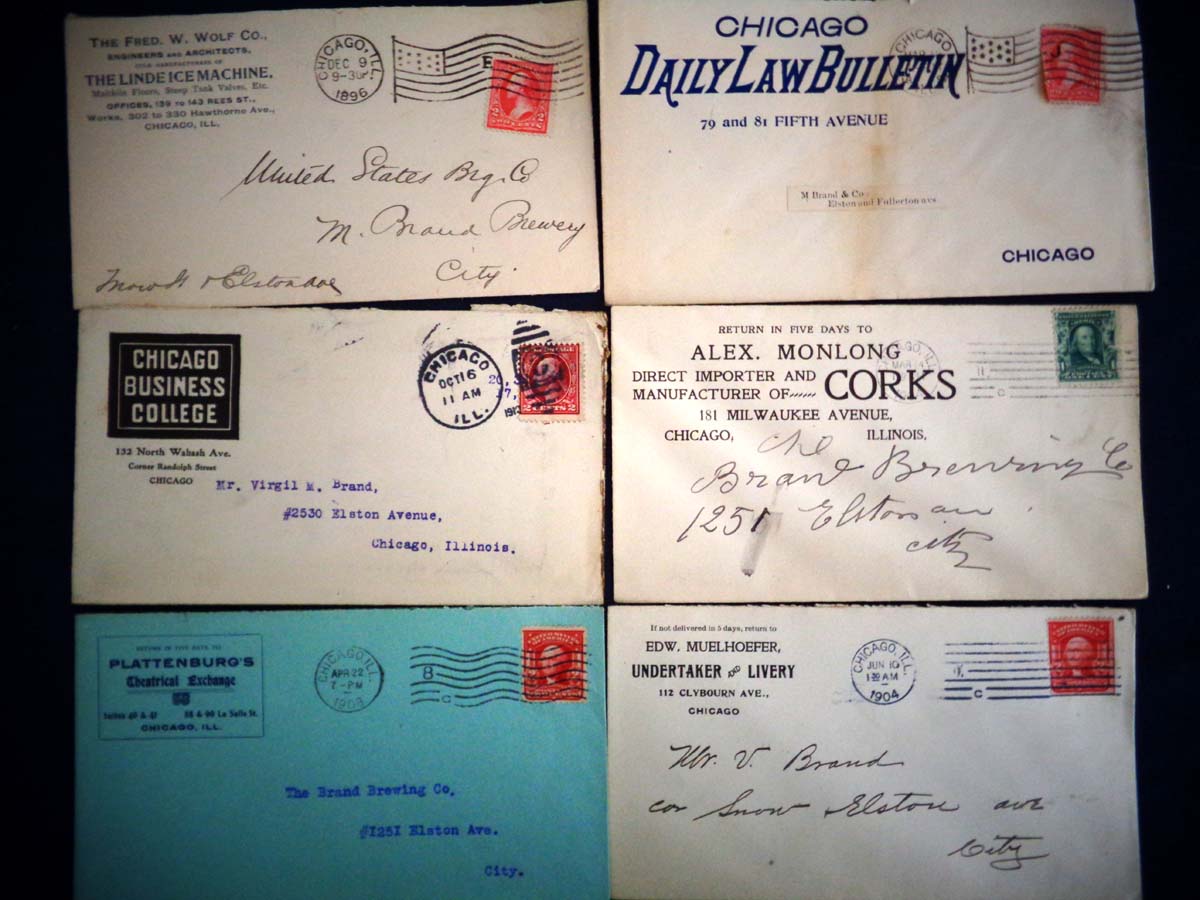 THE FRED. W. WOLF CO.,
ENGINEERS AND ARCHITECTS,
SOLE MANUFACTURERS OF
THE LINDE ICE MACHINE,
Maltkiln Floors, Steep Tank Valves, Etc.
OFFICES, 139 TO 143 REES ST.,
Works, 302 to 330 Hawthorne Ave.,
CHICAGO, ILL.
CHICAGO, ILL.
DEC 9
9-30
1896
United States Brg. Co
M. Brand Brewery
City.
Snow St & Elston Ave
CHICAGO
DAILY LAW BULLETIN
79 and 81 FIFTH AVENUE
CHICAGO
M Brand & Co
Elston and Fullerton avs
CHICAGO
CHICAGO
BUSINESS
COLLEGE
132 North Wabash Ave.
Corner Randolph Street
CHICAGO
CHICAGO
OCT 16
11 AM
ILL.
2 CENTS 2
Mr. Virgil M. Brand,
#2530 Elston Avenue,
Chicago, Illinois.
RETURN IN FIVE DAYS TO
ALEX. MONLONG
DIRECT IMPORTER AND
MANUFACTURER OF CORKS
181 MILWAUKEE AVENUE,
CHICAGO, ILLINOIS.
MAR
C
The
Brand Brewing Co
1251 Elston av
city
RETURN IN FIVE DAYS TO
PLATTENBURG'S
Theatrical Exchange
Suites 40 & 41 88 & 90 La Salle St.
CHICAGO, ILL.
CHICAGO, ILL.
APR 22
7-PM
8
C
The Brand Brewing Co.
#1251 Elston Ave.
City.
If not delivered in 5 days, return to
EDW. MUELHOEFER,
UNDERTAKER AND LIVERY
112 CLYBOURN AVE.,
CHICAGO
CHICAGO, ILL.
JUN 10
AM
1904
C
Mr. V. Brand
cor Snow Elston ave
City